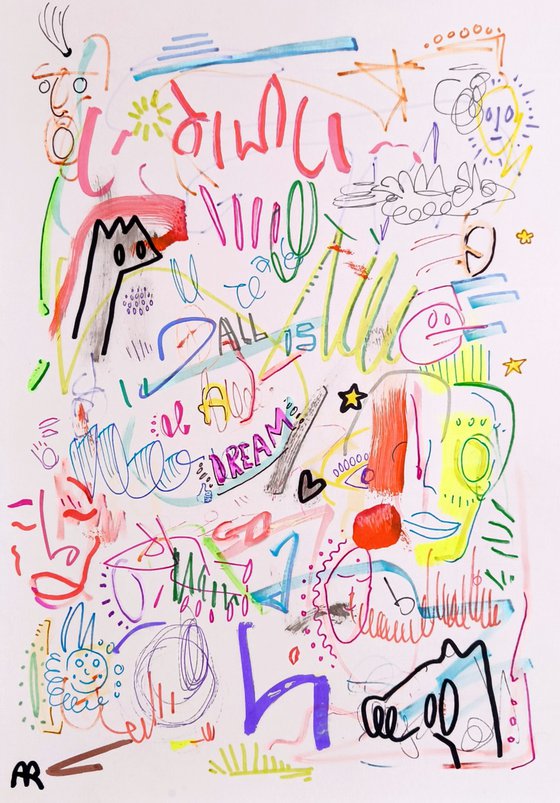 ALL IS
A
DREAM
AR